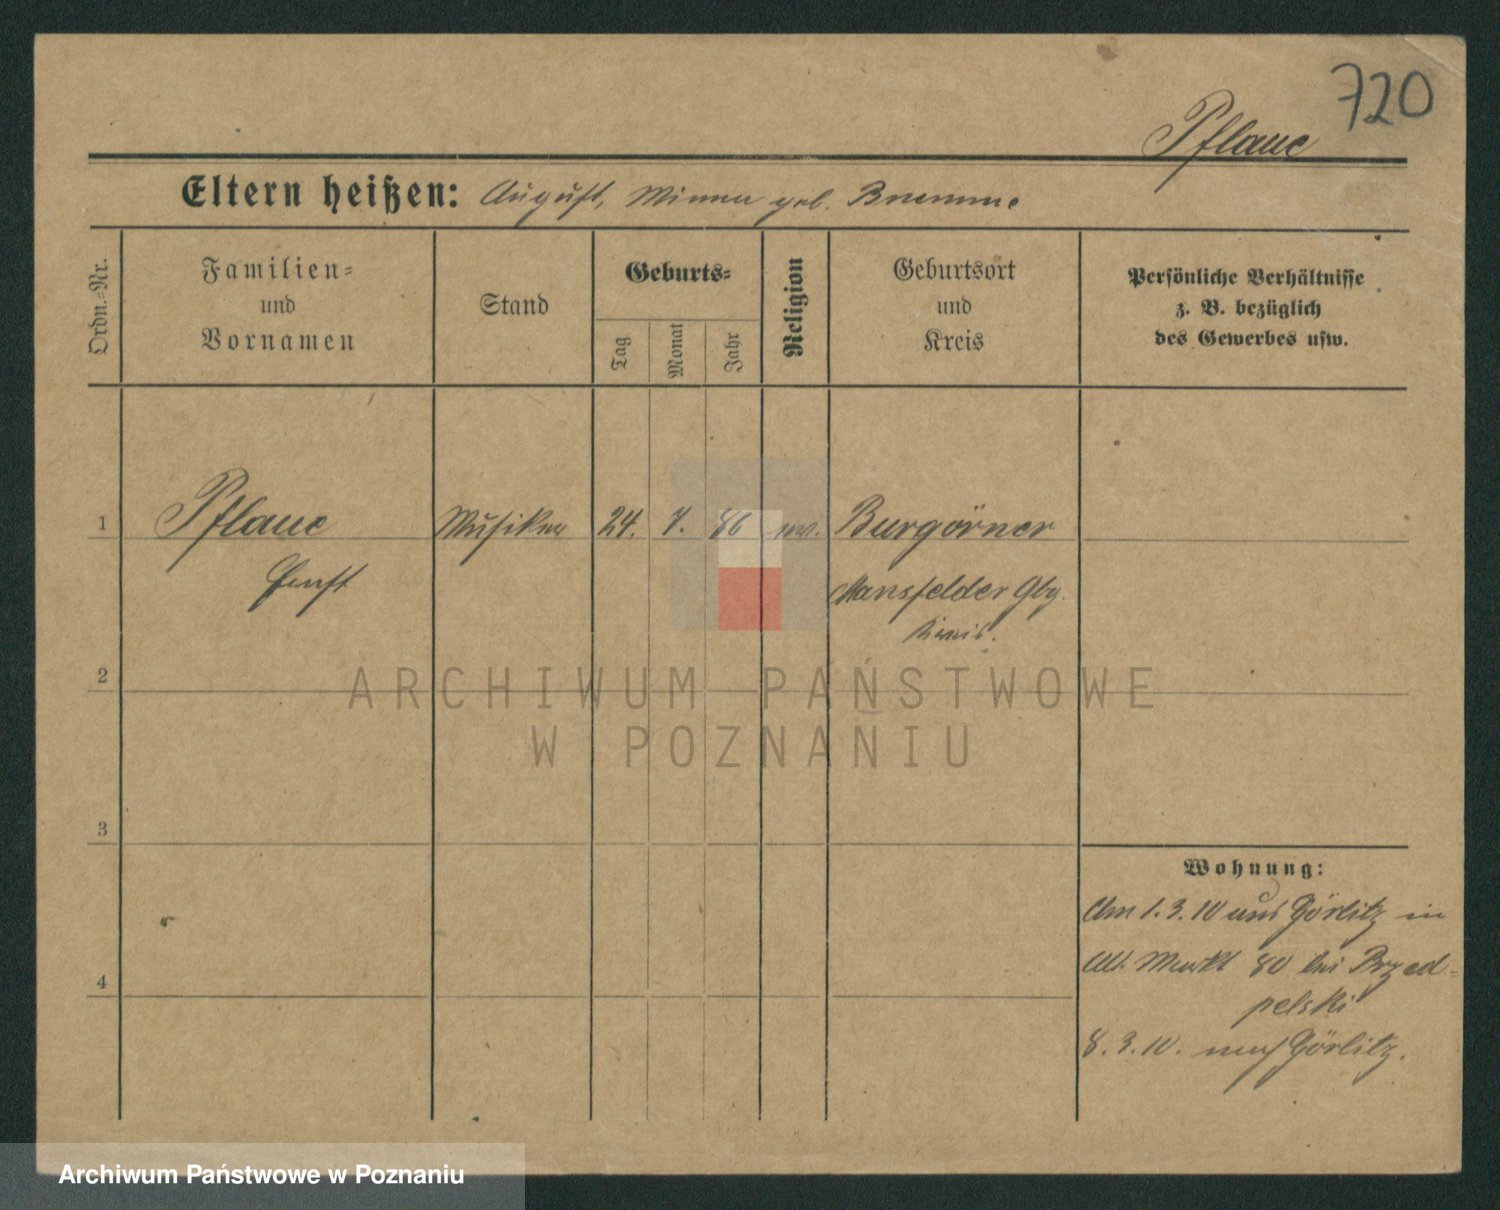 720
Pflaue
Eltern heißen: August, Minna geb. Bremme
Ordn.-Nr.
Familien-
und
Vornamen
Stand
Geburts-
Tag
Monat
Jahr
Religion
Geburtsort
und
Kreis
Persönliche Verhältnisse
z. B. bezüglich
des Gewerbes usw.
1 Pflaue Musiker 24. 7. 86 ev. Burgörner
Ernst Mansfelder Gbg.
Kreis.
2
3
4
Wohnung:
Am 1.3.10 aus Görlitz in
Alt. Markt 80 bei Przed-
pelski
8.3.10. nach Görlitz.
ARCHIWUM PAŃSTWOWE
W POZNANIU
Archiwum Państwowe w Poznaniu